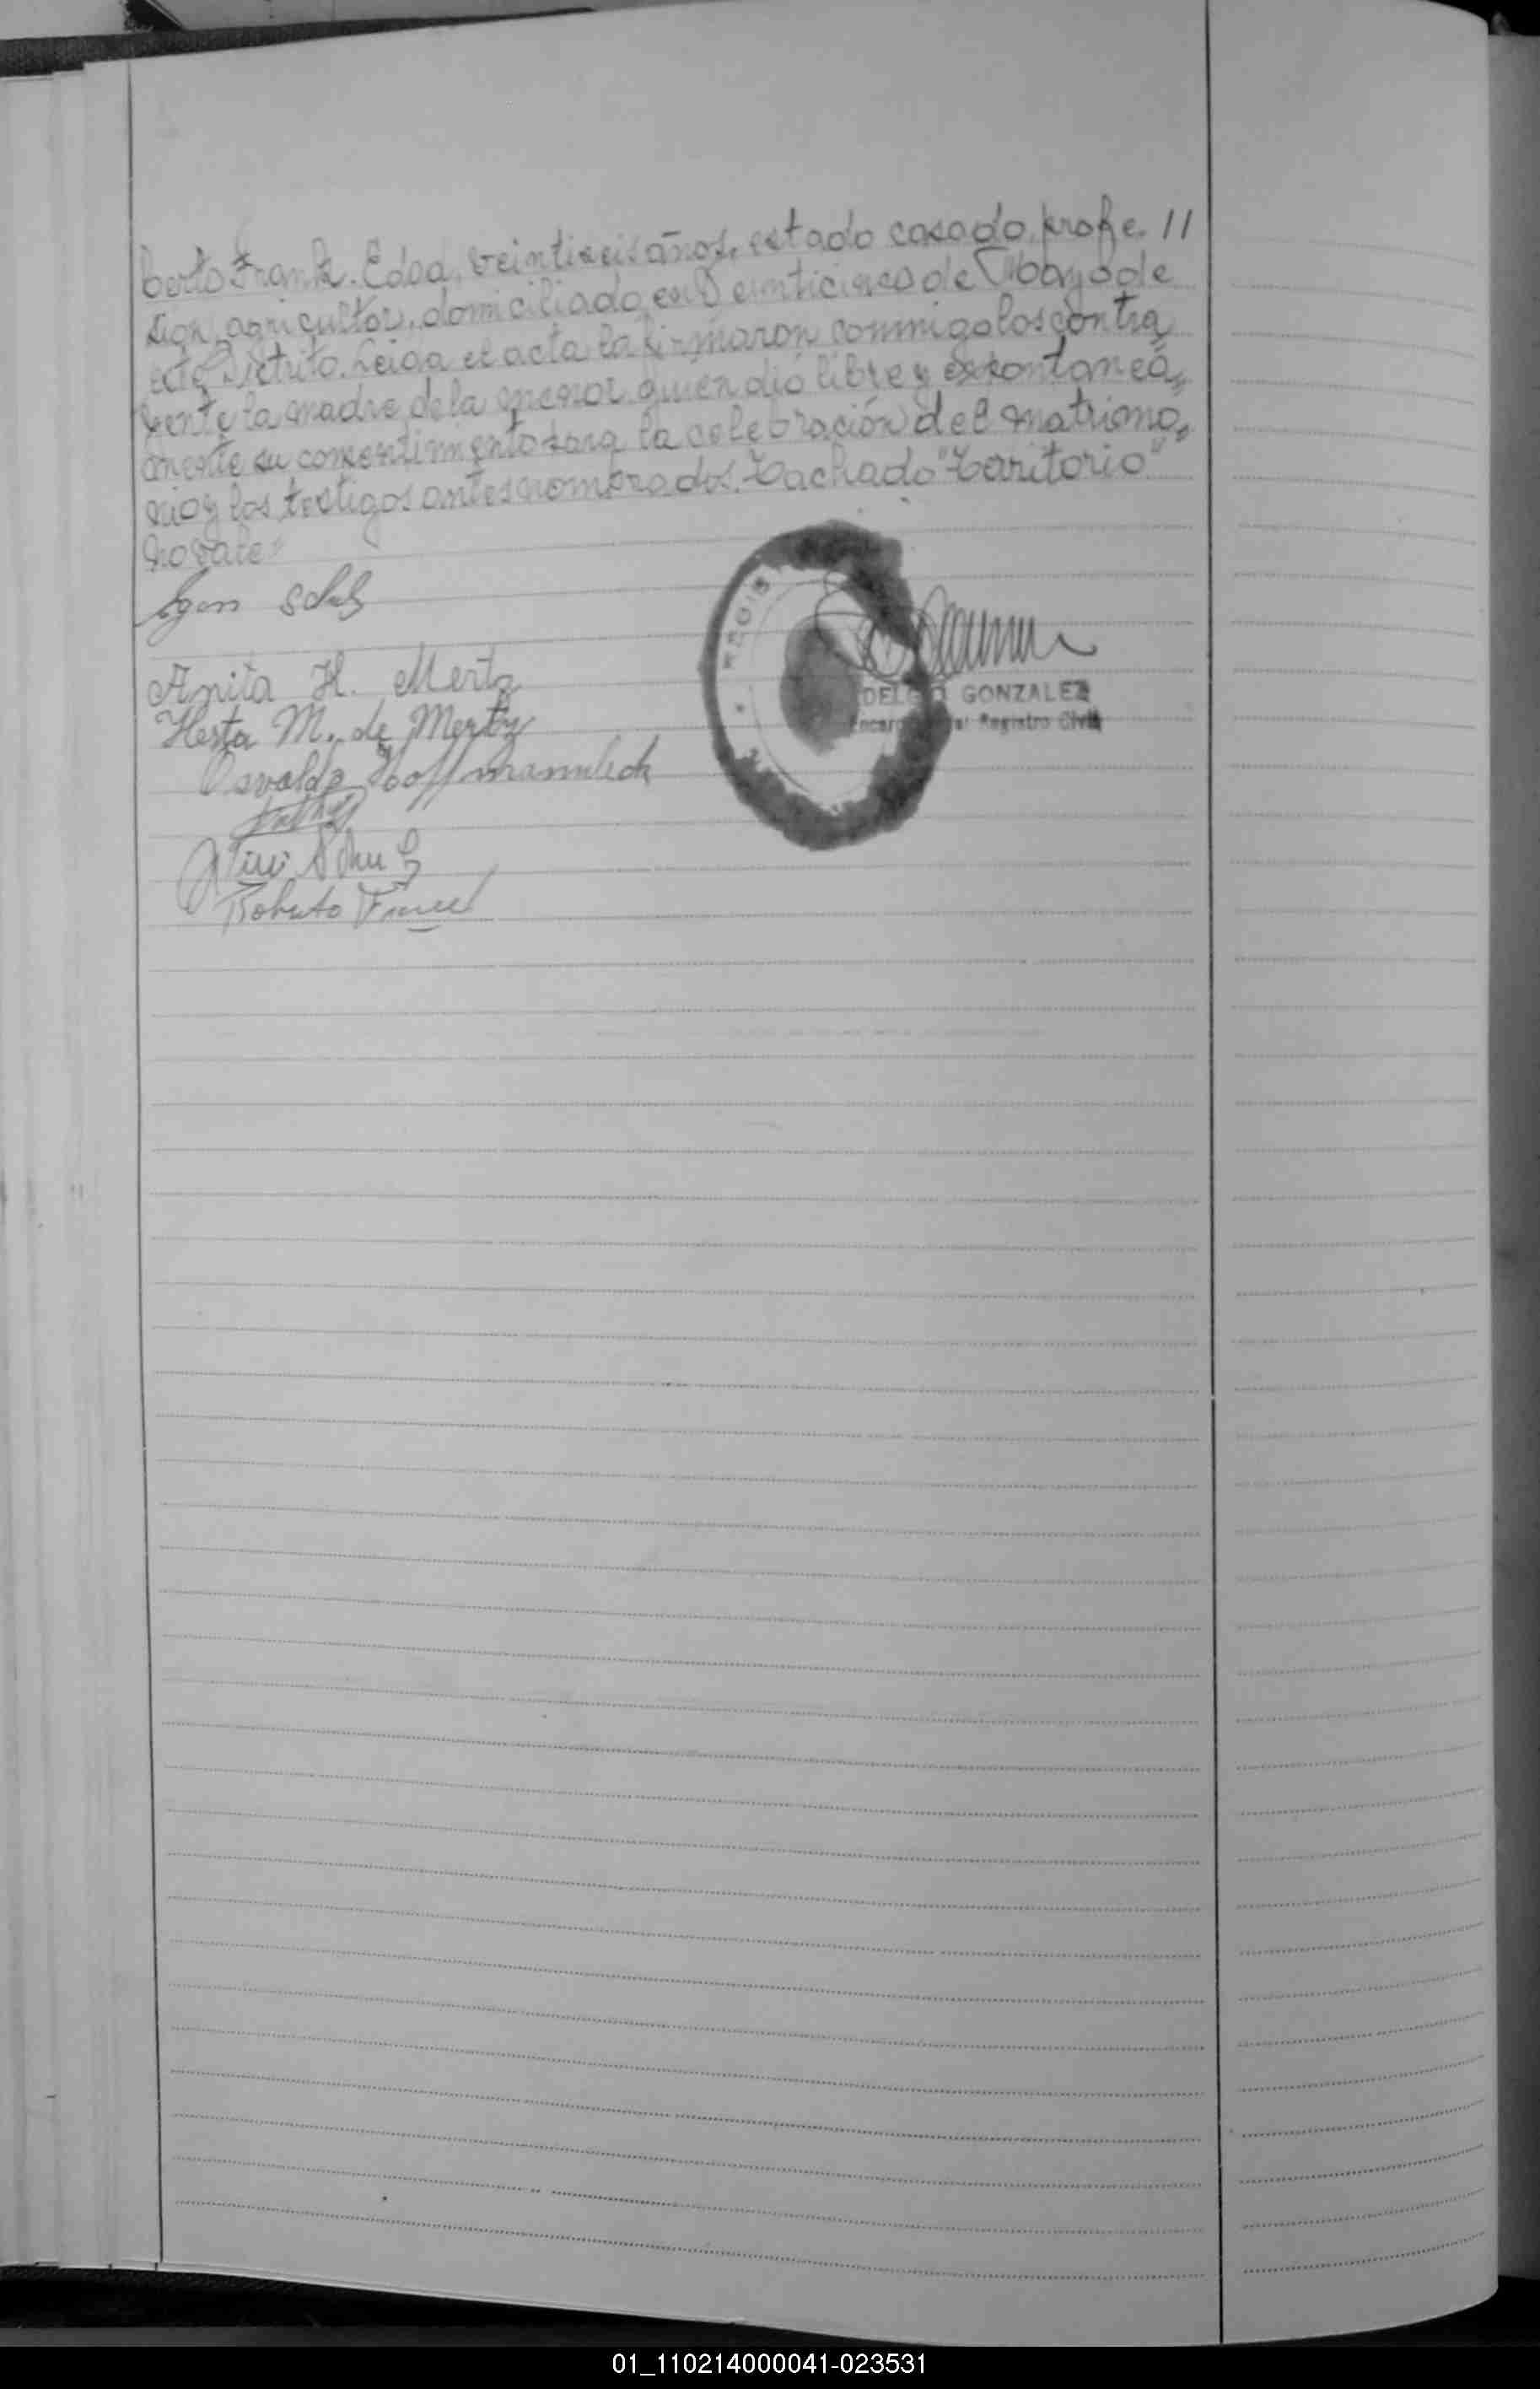 berto Frank. Edad, veintiseis años, estado casado, profe //
sion, agricultor, domiciliado en Veinticinco de Mayo de
este Distrito. Leida el acta la firmaron conmigo los contra
yente la madre de la menor quien dió libre y espontanea,,
mente su consentimiento para la celebración del matrimo,,
nio y los testigos antes nombrados. Tachado "Territorio"
no vale
Egon Schulz
Anita H. Mertz
Herta M. de Mertz
Osvaldo Hoffmann
Roberto
REGIS
DEL GONZALEZ
Registro Civil
01_110214000041-023531